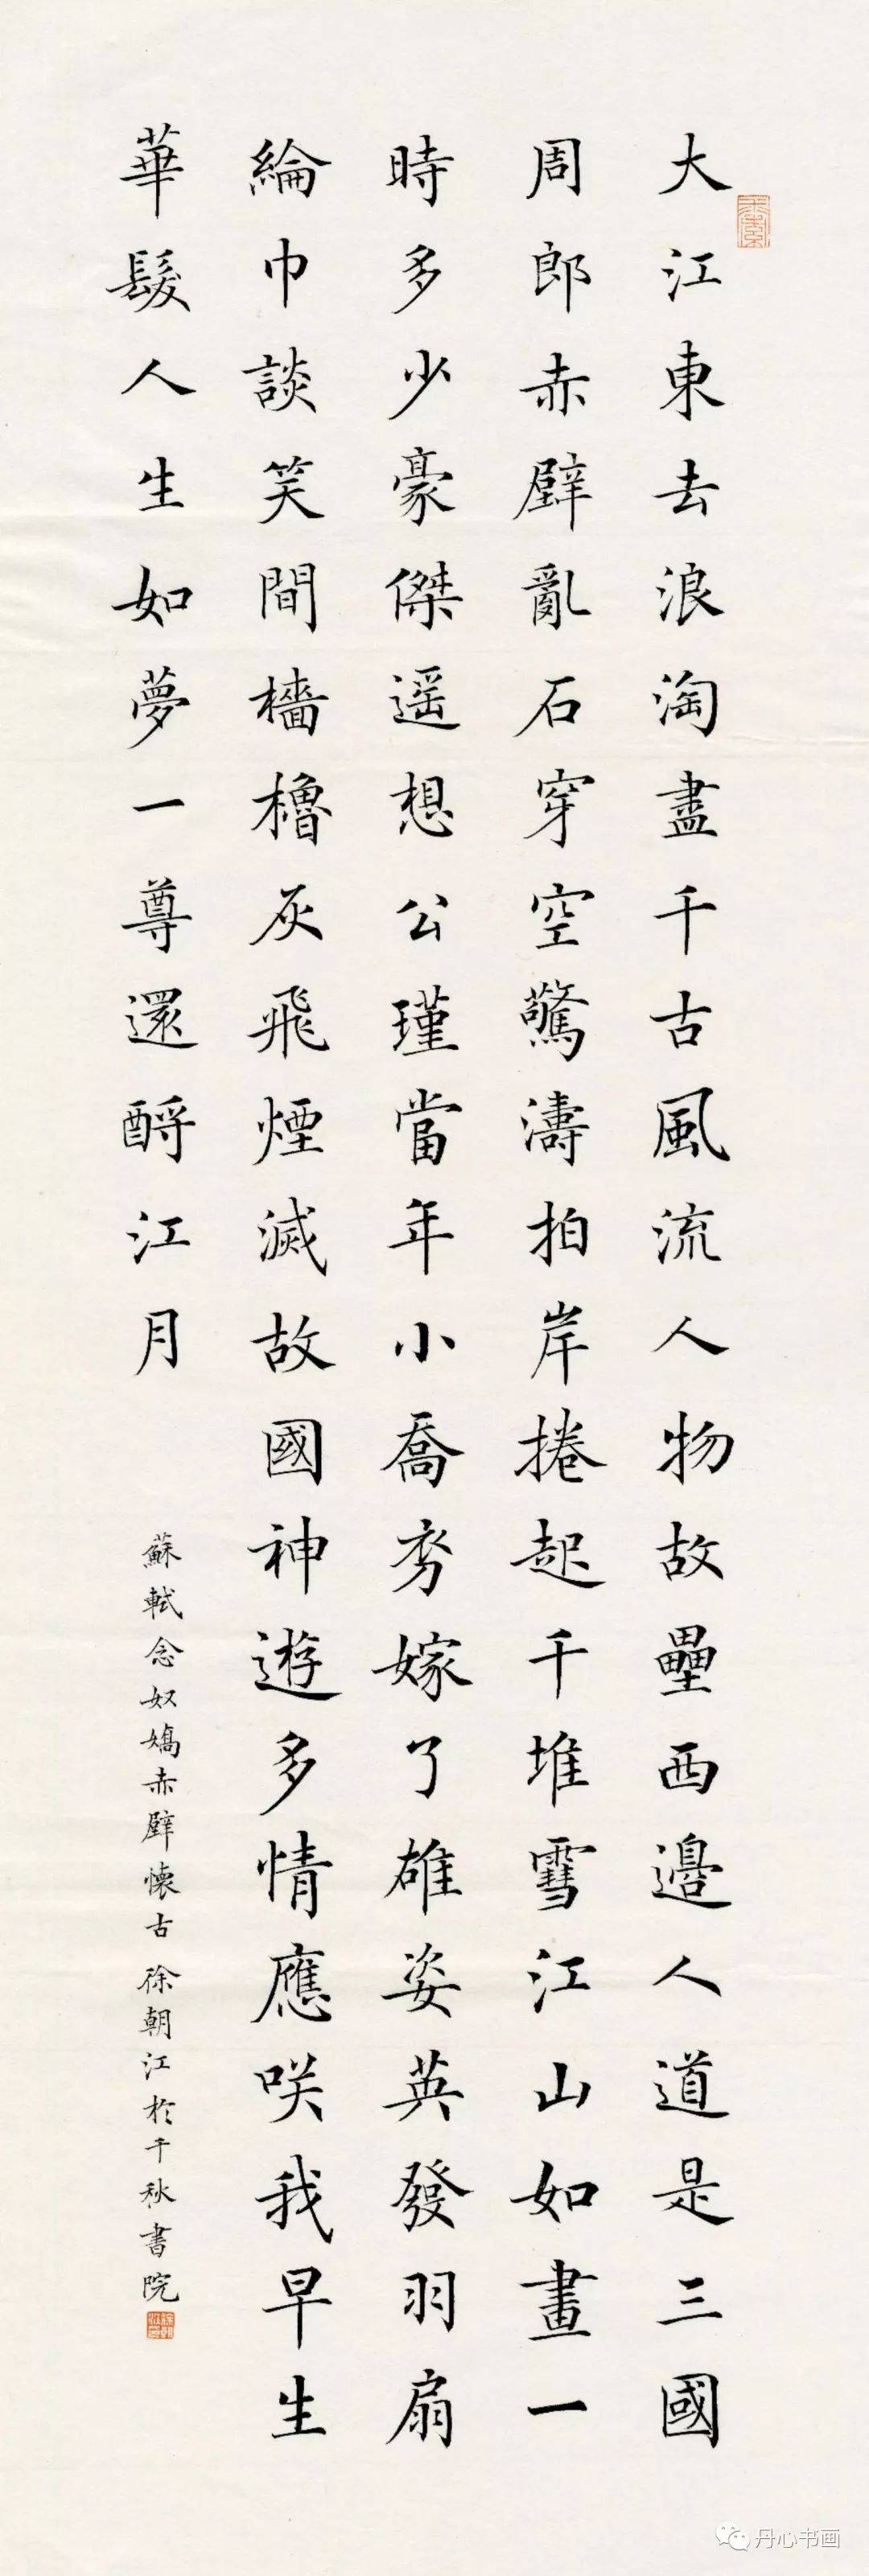 大江東去浪淘盡千古風流人物故壘西邊人道是三國
周郎赤壁亂石穿空驚濤拍岸捲起千堆雪江山如畫一
時多少豪傑遥想公瑾當年小喬秀嫁了雄姿英發羽扇
綸巾談笑間檣櫓灰飛煙滅故國神遊多情應咲我早生
華髮人生如夢一尊還酹江月
蘇軾念奴嬌赤壁懷古徐朝江於千秋書院
丹心书画